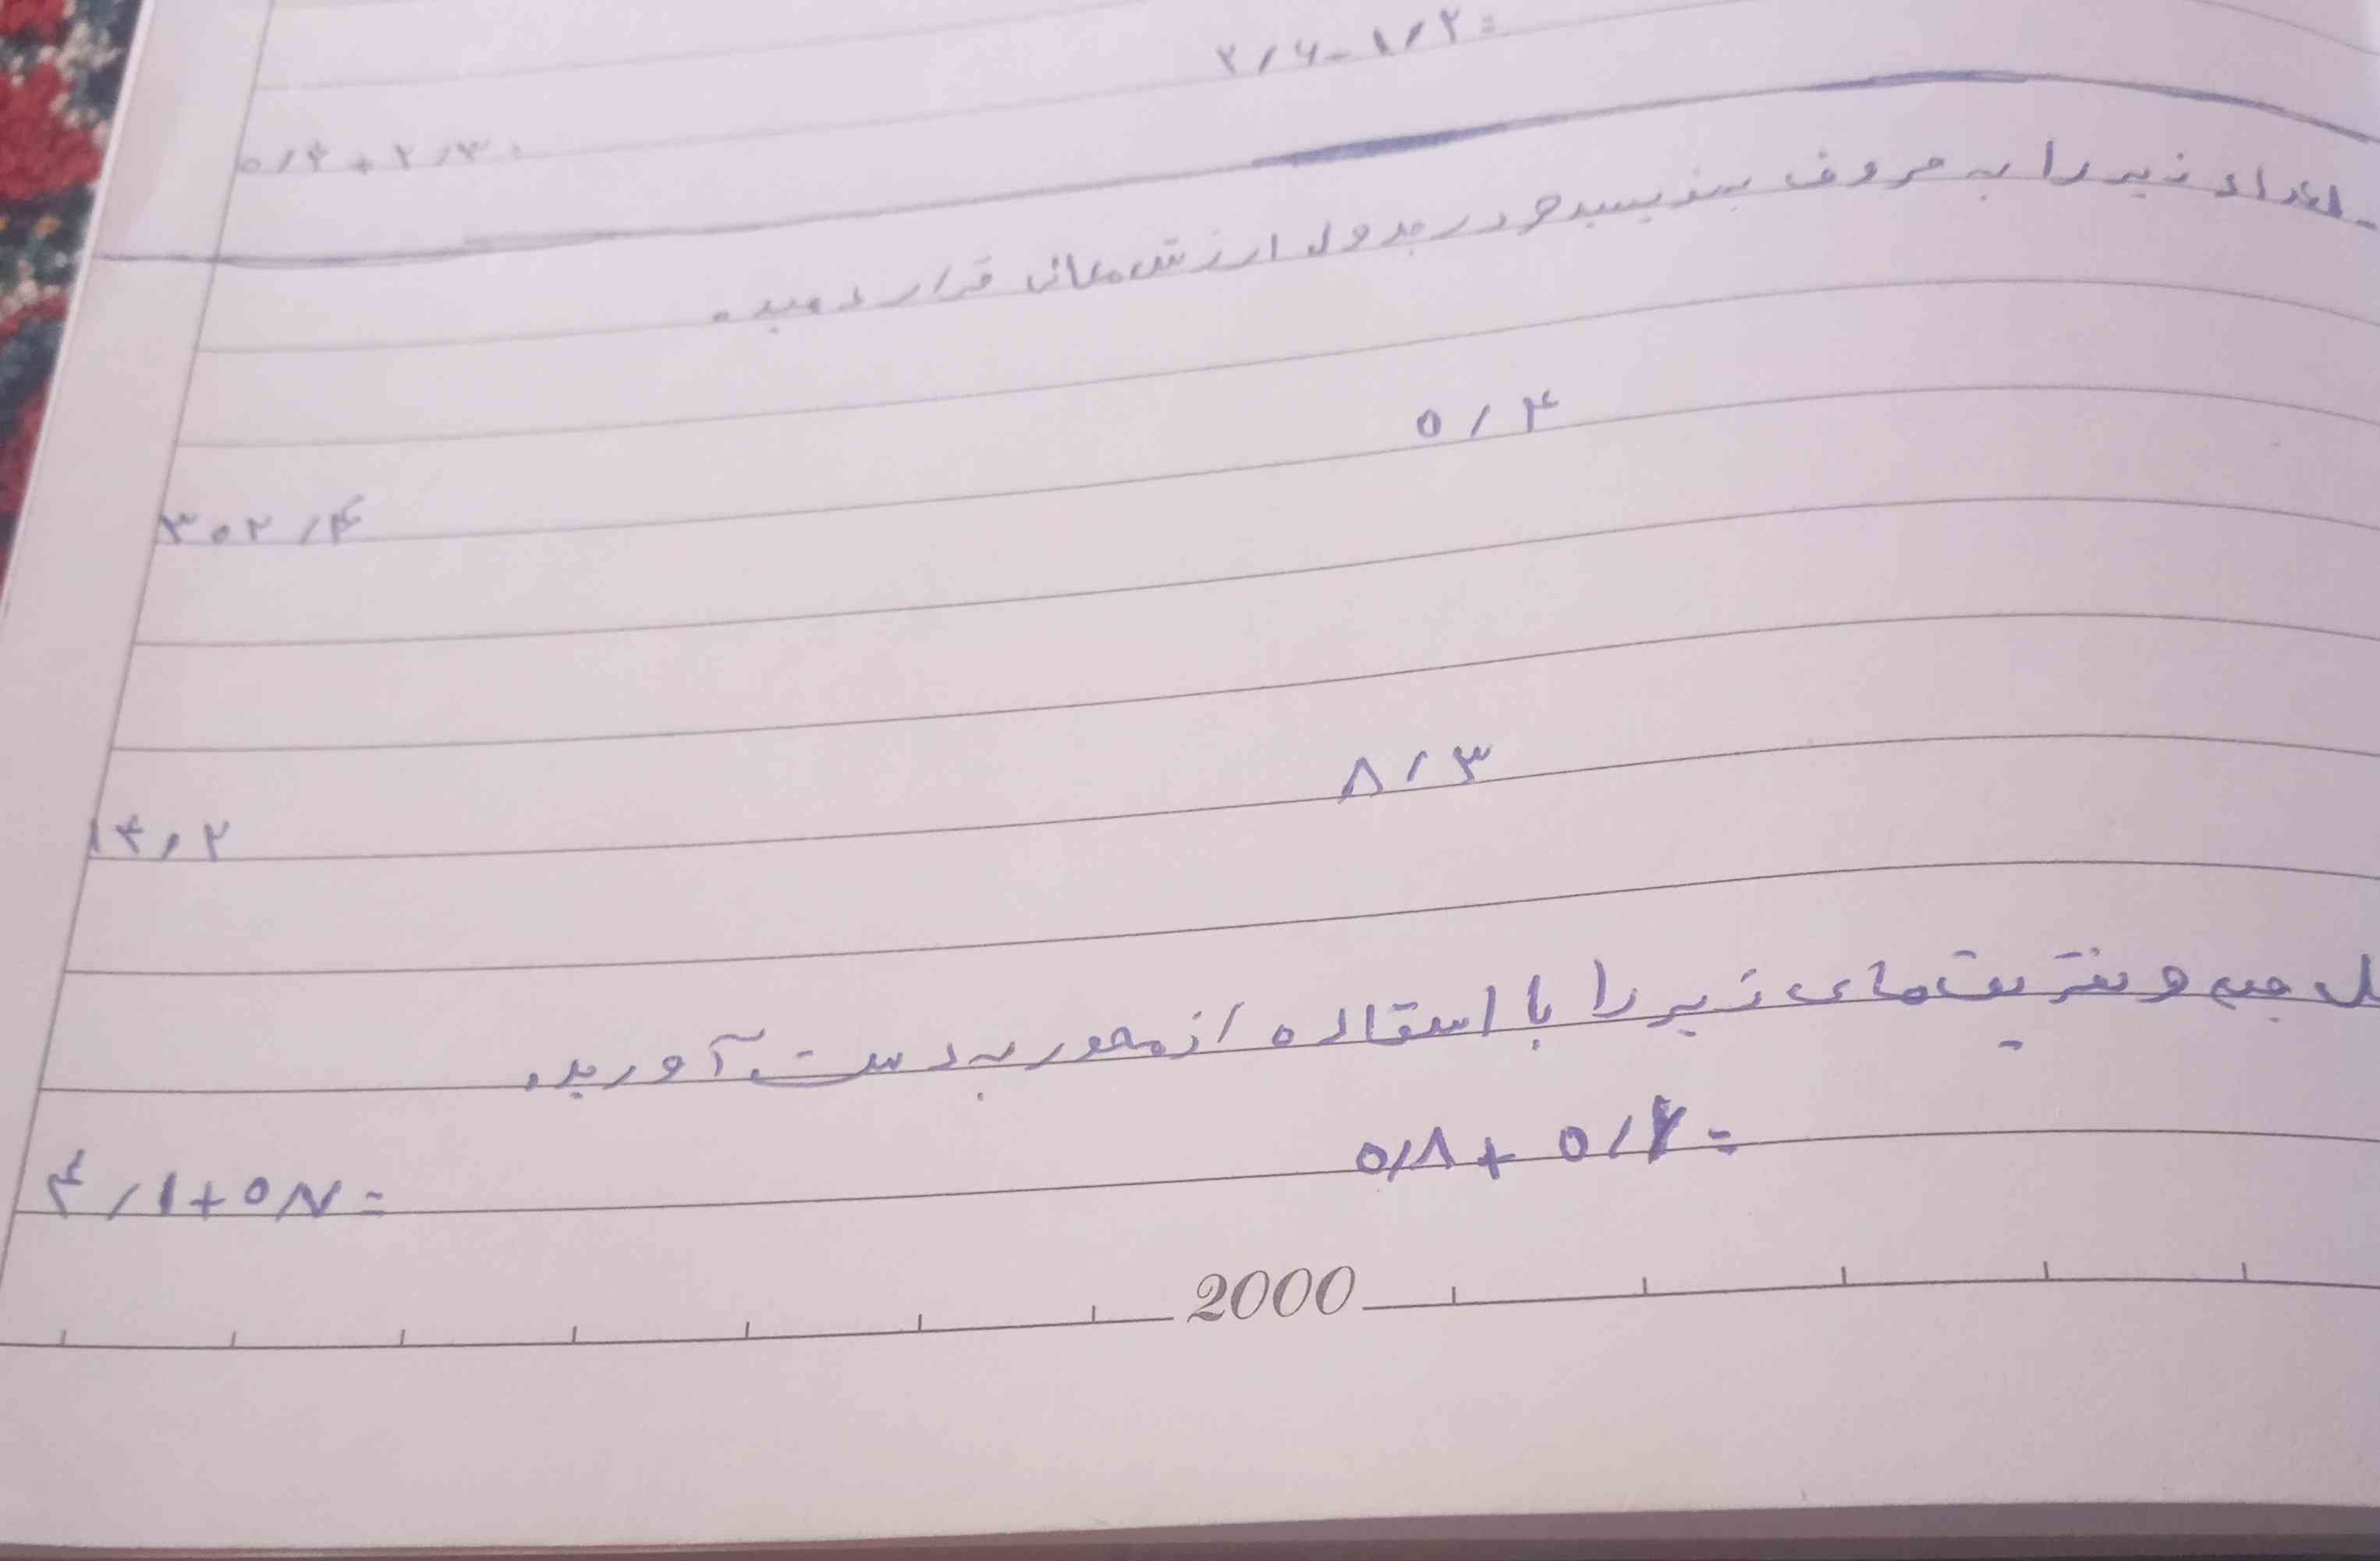 ۳/۶ - ۱/۲ =
۵/۴ + ۲/۳
اعداد زیر را به حروف بنویسید و در جدول ارزش مکانی قرار دهید.
۵/۴
۳۰۲/۴
۸/۳
۱۴/۲
جمع و تفریق های زیر را با استفاده از محور به دست آورید.
۰/۸ + ۰/۲ =
۴/۱ + ۰/۷ =
2000